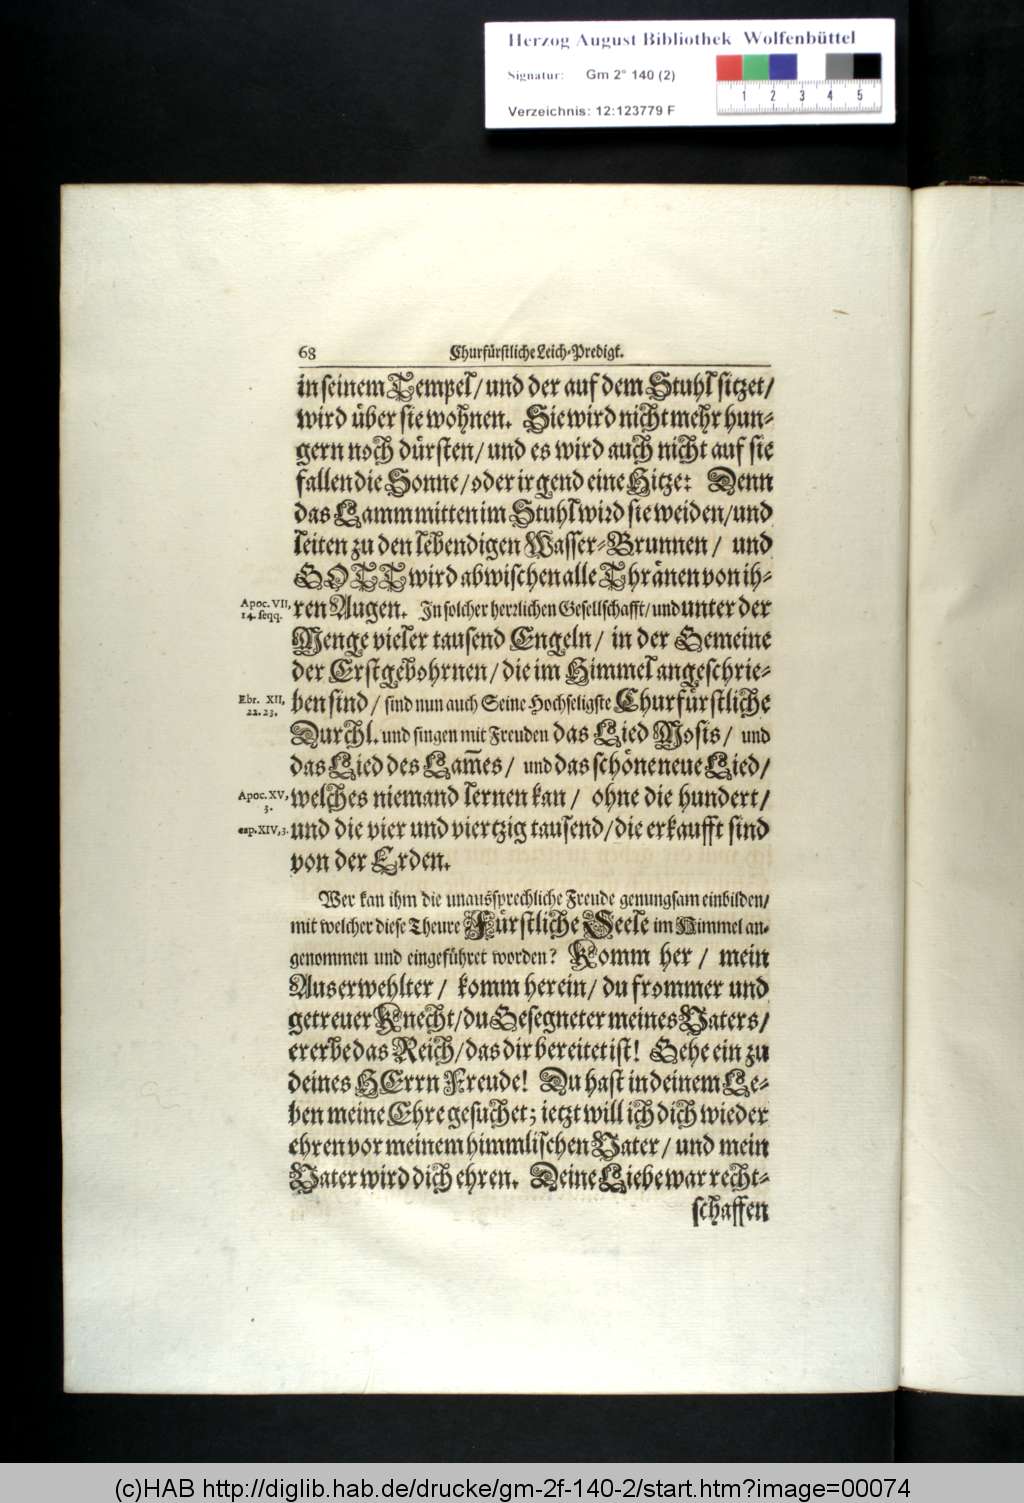 Herzog August Bibliothek Wolfenbüttel
Signatur: Gm 2° 140 (2)
1 2 3 4 5
Verzeichnis: 12:123779 F
68 Churfürstliche Leich-Predigt.
in seinem Tempel/ und der auf dem Stuhl sitzet/
wird über sie wohnen. Sie wird nicht mehr hun-
gern noch dürsten/ und es wird auch nicht auf sie
fallen die Sonne/ oder irgend eine Hitze: Denn
das Lamm mitten im Stuhl wird sie weiden/ und
leiten zu den lebendigen Wasser-Brunnen/ und
GOTT wird abwischen alle Thränen von ih-
Apoc. VII, 14. seqq.
ren Augen. In solcher herrlichen Gesellschafft/ und unter der
Menge vieler tausend Engeln/ in der Gemeine
der Erstgebohrnen/ die im Himmel angeschrie-
Ebr. XII, 22. 23.
ben sind/ sind nun auch Seine Hochseligste Churfürstliche
Durchl. und singen mit Freuden das Lied Mosis/ und
das Lied des Lam̅es/ und das schöne neue Lied/
Apoc. XV, 3.
welches niemand lernen kan/ ohne die hundert/
cap. XIV, 3.
und die vier und viertzig tausend/ die erkaufft sind
von der Erden.
Wer kan ihm die unaussprechliche Freude genungsam einbilden/
mit welcher diese Theure Fürstliche Seele im Himmel an-
genommen und eingeführet worden? Komm her/ mein
Auserwehlter/ komm herein/ du frommer und
getreuer Knecht/ du Gesegneter meines Vaters/
ererbe das Reich/ das dir bereitet ist! Gehe ein zu
deines HErrn Freude! Du hast in deinem Le-
ben meine Ehre gesuchet; ietzt will ich dich wieder
ehren vor meinem himmlischen Vater/ und mein
Vater wird dich ehren. Deine Liebe war recht-
schaffen
(c)HAB http://diglib.hab.de/drucke/gm-2f-140-2/start.htm?image=00074